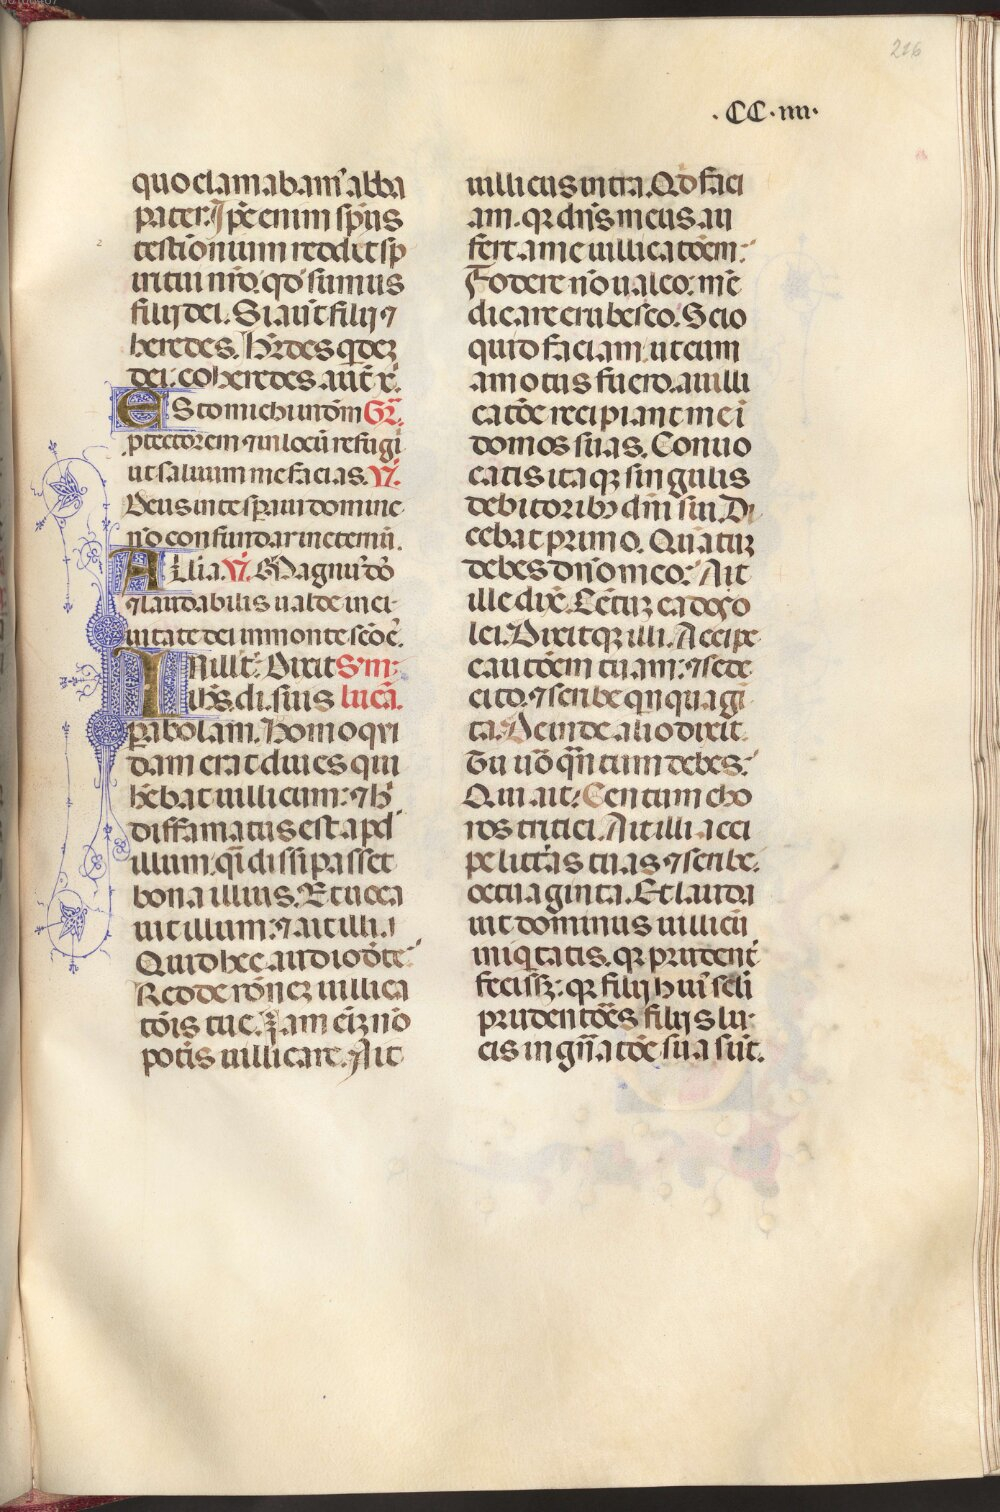 216
·CC·IIII·
quo clamabam᷒ abba
pater. Ip̄e enim sp̄us
testi᷒onium reddet sp̄
iritui nr̄o. qd̄ sumus
filij dei. Si aūt filij ⁊
heredes. H̄rdes q̇dez
dei. coheredes. aūt x̄.
Esto michi in dōm Gr̄.
ꝓtectorem ⁊ in locū refugi
ut saluum me facias. V̄.
Deus in te sp̄aui domine
nō confundar in eternū.
Allia. V̄. Magnus dō
⁊ laudabilis ualde in ci
uitate dei in monte sc̄o ē.
In ill̄ t̄. Dixit Scḋm
ih̄s. di. suis lucā.
parabolam. Homo qui
dam erat diues qui
hēbat uillicum: ⁊ h̄
diffamatus est apd̄
illum. qi̅ dissipasset
bona illius. Et uoca
uit illum: ⁊ ait illi.
Quid hec audio d̄ te.
Redde rōnez uillica
tōis tue. Iam eīz nō
potis uillicare. Ait
uillicus intra. Qd̄ faci
am. qꝛ dn̄s meus au
fert. a me uillicatōem:
Fodere nō ualeo: mē
dicare erubesco. Scio
quid faciam. ut cum
amotus fuero. a uilli
catōe recipiant me i
domos suas. Conuo
catis itaqꝫ singulis
debitoribꝫ dn̄i sui. Di
cebat primo. Quātuz
debes dn̄o meo: Ait
ille dix̄. Centuz cados o
lei. Dixitqꝫ illi. Accipe
cautōem tuam: ⁊ sede
cito. ⁊ scribe qn̄quagi
ta. Deinde alio dixit.
Tu uō qn̄tum debes:
Qui ait: Centum cho
ros tritici. Ait illi acci
pe litt̄as tuas ⁊ scribe.
octuaginta. Et lauda
uit dominus uillicū
iniq̇tatis. qꝛ prudent̄
fecissꝫ: qꝛ filij hui᷒ sc̄li
prudentōes filijs lu:
cis in gn̄atōe sua sūt.